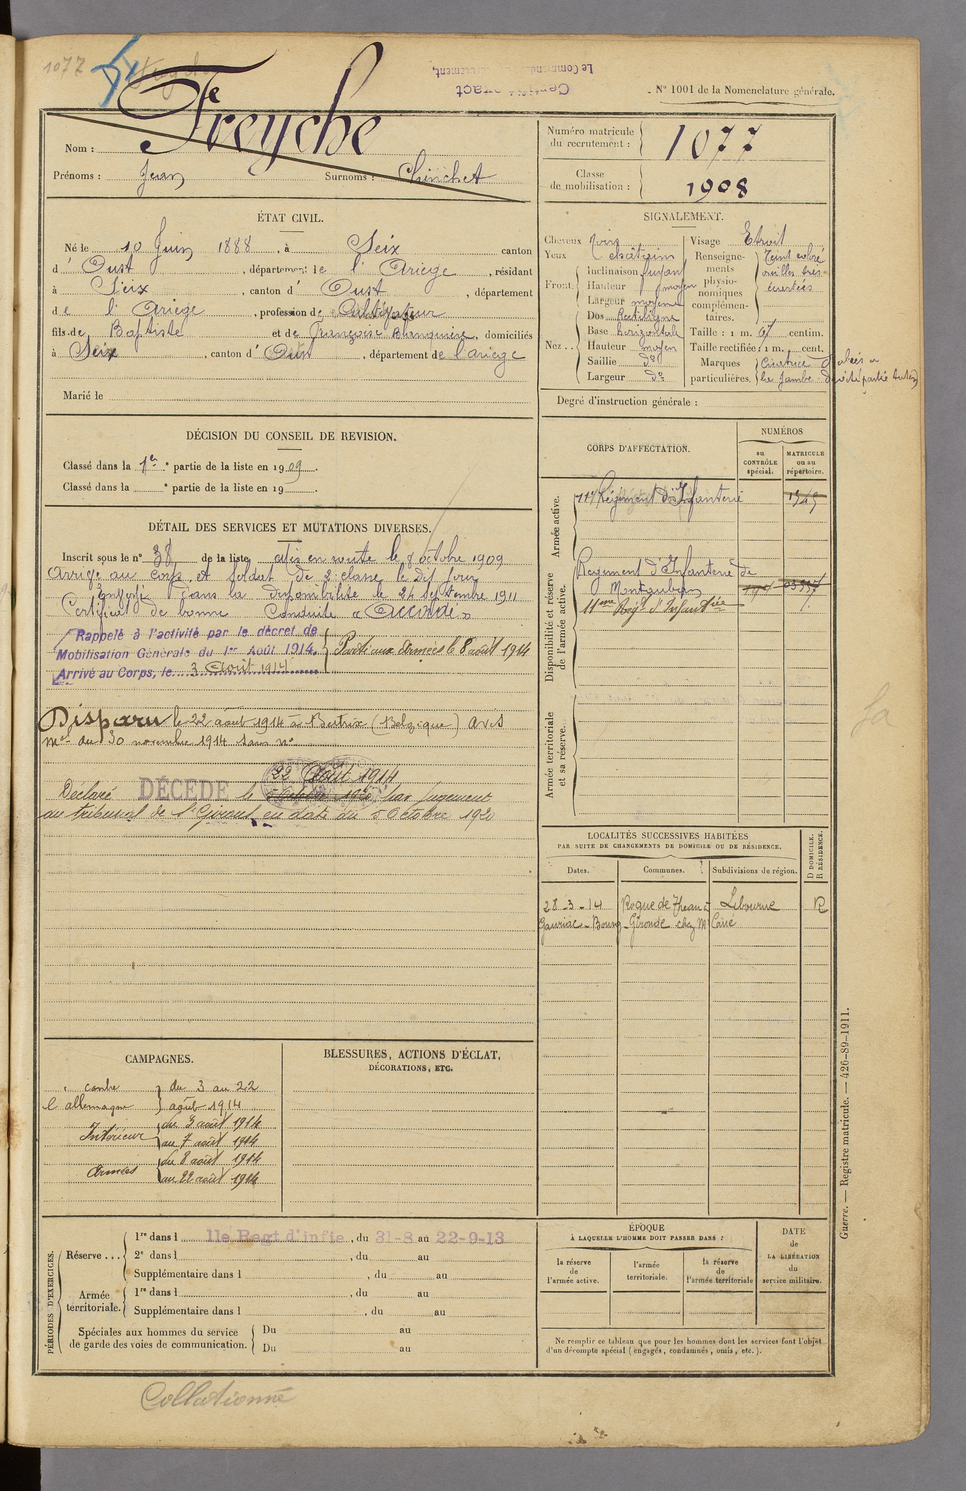 1077
N° 1001 de la Nomenclature générale.
Freyche
Nom :
Prénoms : Jean Surnoms : Chinchet
Numéro matricule du recrutement : 1077
Classe de mobilisation : 1908
ÉTAT CIVIL.
Né le 10 Juin 1888, à Seix canton
d'Oust, département de l'Ariège, résidant
à Seix, canton d'Oust, département
de l'Ariège, profession de Cultivateur
fils de Baptiste et de Françoise, domiciliés
à Seix, canton d'Oust, département de l'ariege
Marié le
SIGNALEMENT.
Cheveux noirs
Yeux châtains
Front : inclinaison fuyant
Hauteur moyen
Largeur moyenne
Nez : Dos Rectiligne
Base horizontale
Hauteur moyen
Saillie do
Largeur do
Visage Etroit
Renseignements physionomiques complémentaires. Teint coloré oreilles très écartées
Taille : 1 m. 67 centim.
Taille rectifiée : 1 m. cent.
Marques particulières. Cicatrice
Degré d'instruction générale :
DÉCISION DU CONSEIL DE REVISION.
Classé dans la 1re partie de la liste en 1909.
Classé dans la e partie de la liste en 19 .
CORPS D'AFFECTATION.
NUMÉROS
au CONTRÔLE spécial.
MATRICULE ou au répertoire.
Armée active.
Régiment d'Infanterie
Disponibilité et réserve de l'armée active.
Régiment d'Infanterie de Montauban
11eme Reg d'Infanterie
Armée territoriale et sa réserve.
DÉTAIL DES SERVICES ET MUTATIONS DIVERSES.
Inscrit sous le n° 38 de la liste en route le 8 octobre 1909
Arrivé au corps et soldat de 2e classe le dit jour
Envoyé dans la disponibilité le 24 septembre 1911
Certificat de bonne Conduite « Accordé »
Rappelé à l'activité par le décret de
Mobilisation Générale du 1er Août 1914.
Arrivé au Corps, le 3 Août 1914
Parti aux Armées le 8 août 1914
Disparu le 22 août 1914 à Bertrix (Belgique) avis
mel du 30 novembre 1914 sans n°
22 Août 1914
Déclaré DÉCÉDÉ le 5 Octobre 1920 par jugement
au tribunal de St Girons en date du 5 Octobre 1920
LOCALITÉS SUCCESSIVES HABITÉES
PAR SUITE DE CHANGEMENTS DE DOMICILE OU DE RÉSIDENCE.
Dates. Communes. Subdivisions de région. D DOMICILE. R RÉSIDENCE.
28-3-14 Roque de Thau à Libourne R
Gauriac-Bourg-Gironde chez Mr
CAMPAGNES.
contre l'allemagne du 3 au 22 août 1914
Intérieur du 3 août 1914 au 7 août 1914
Armées du 8 août 1914 au 22 août 1914
BLESSURES, ACTIONS D'ÉCLAT,
DÉCORATIONS, ETC.
PÉRIODES D'EXERCICES.
Réserve ... 1re dans l 11e Regt d'infie, du 31-8 au 22-9-13
2e dans l , du au
Supplémentaire dans l , du au
Armée territoriale. 1re dans l , du au
Supplémentaire dans l , du au
Spéciales aux hommes du service de garde des voies de communication. Du au
Du au
ÉPOQUE
À LAQUELLE L'HOMME DOIT PASSER DANS :
la réserve de l'armée active.
l'armée territoriale.
la réserve de l'armée territoriale
DATE de LA LIBÉRATION du service militaire.
Ne remplir ce tableau que pour les hommes dont les services font l'objet
d'un décompte spécial (engagés, condamnés, omis, etc.).
Guerre. — Registre matricule. — 426-89-1911.
Collationné